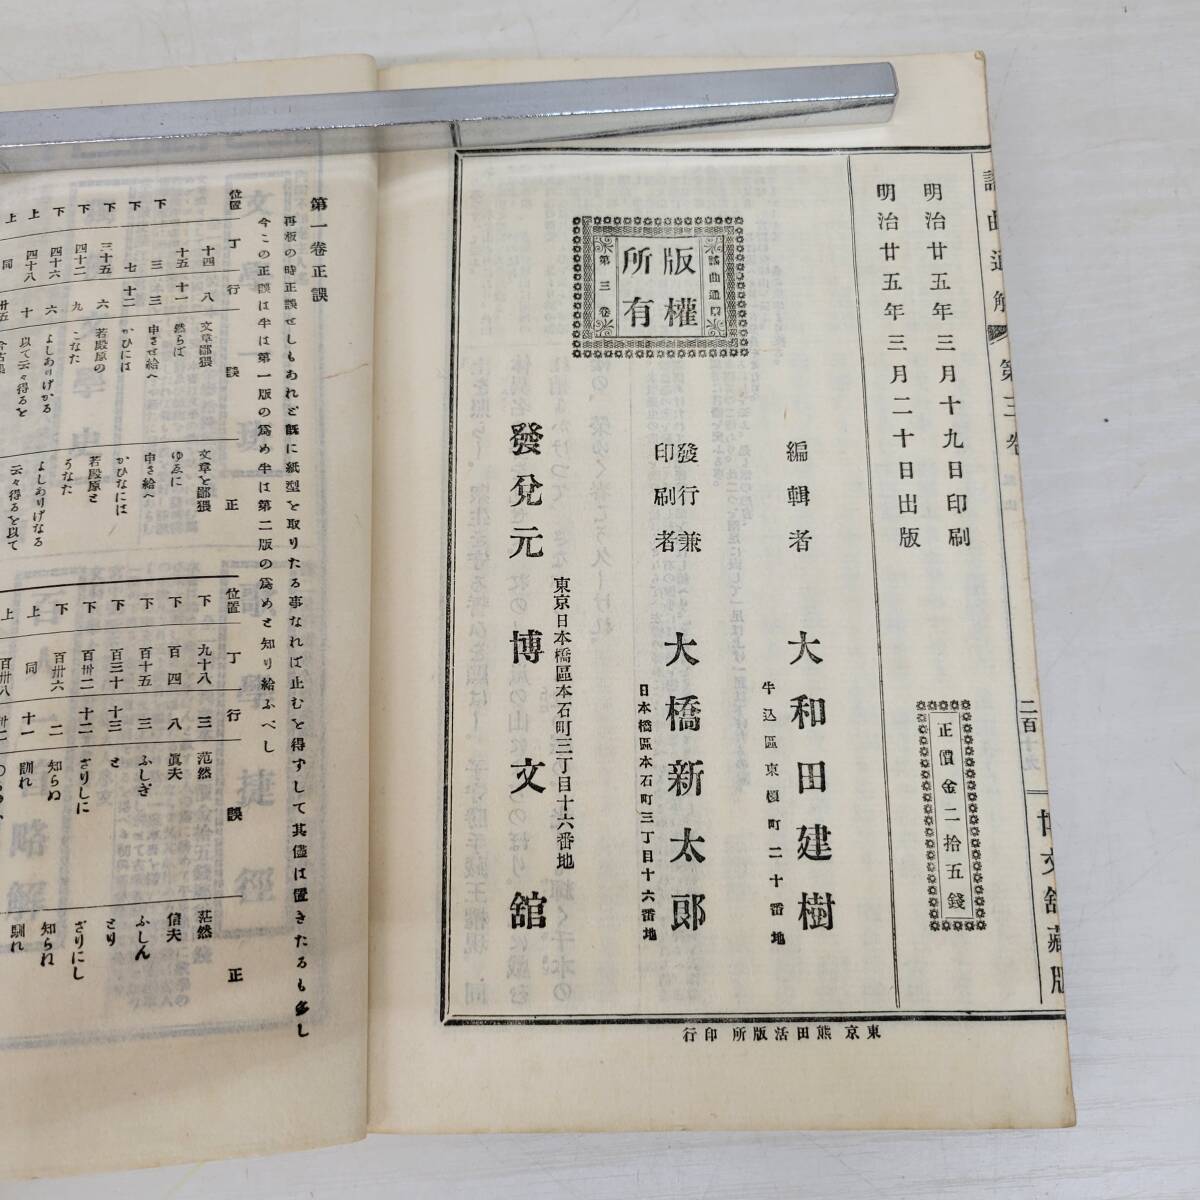 謠曲通解 第三卷
二百十九
博文舘藏版
明治廿五年三月十九日印刷
明治廿五年三月二十日出版
正價金二拾五錢
謠曲通解
版權
所有
第三卷
編輯者 大和田建樹
發行兼
印刷者 大橋新太郎
日本橋區本石町三丁目十六番地
東京日本橋區本石町三丁目十六番地
發兌元 博文舘
東京 熊田活版所 印行
第一卷正誤
再板の時正誤せしもあれど既に紙型を取りたる事なれば止むを得ずして其儘は置きたるも多し
今この正誤は半は第一版の爲め半は第二版の爲めと知り給ふべし
位置 丁 行 誤 正
十四 八 文章鄙猥 文章と鄙猥
十五 十一 然らば ゆゑに
下 三 三 申させ給へ 申さ給へ
下 七 十二 かひには かひなには
下 三十五 六 若殿原の 若殿原と
下 四十二 九 こなた うなた
下 四十六 六 よしありけかる よしありげなる
上 四十八 十 以て云々得ると 云々得るを以て
上 同 廿五
位置 丁 行 誤 正
下 九十八 三 范然 茫然
下 百四 八 眞夫 信夫
下 百十五 三 ふしぎ ふしん
下 百三十 十三 と とり
下 百卅二 十二 ざりしに ざりにし
下 百卅六 二 知らぬ 知られ
上 同 十一 訓れ 馴れ
上 百卅八